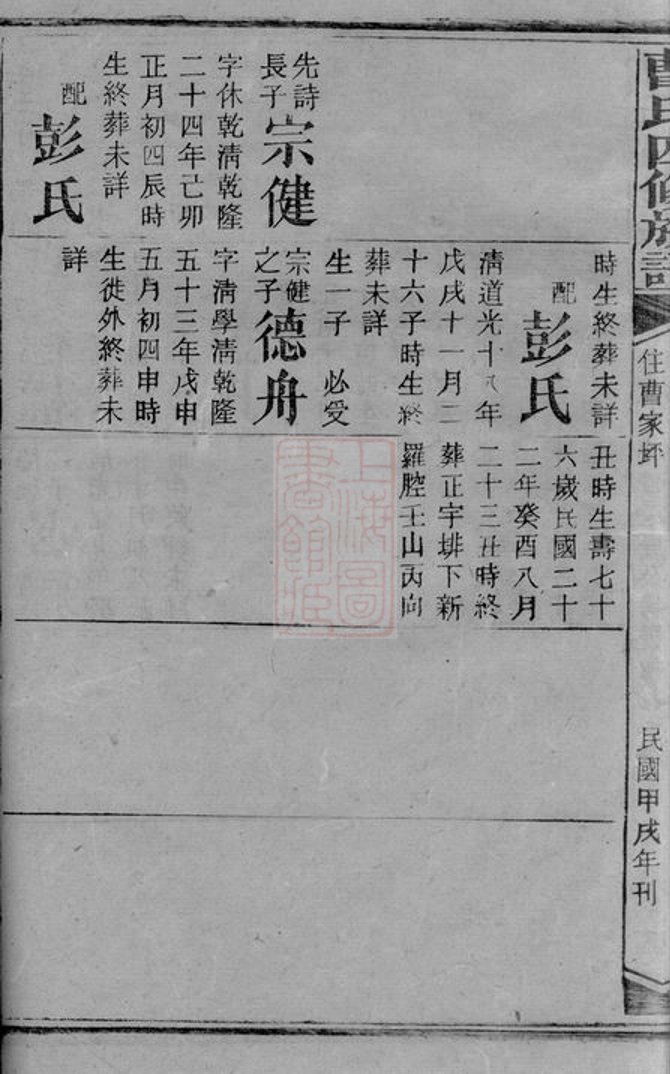 曹氏四修族譜
住曹家坪
民國甲戌年刊
先詩
長子
宗健
字休乾清乾隆
二十四年己卯
正月初四辰時
生終葬未詳
配
彭氏
時生終葬未詳
配
彭氏
清道光十八年
戊戌十一月二
十六子時生終
葬未詳
生一子 必受
宗健
之子
德舟
字清學清乾隆
五十三年戊申
五月初四申時
生徙外終葬未
詳
丑時生壽七十
六歲民國二十
二年癸酉八月
二十三丑時終
葬正字排下新
羅腔壬山丙向
上海圖
書館藏